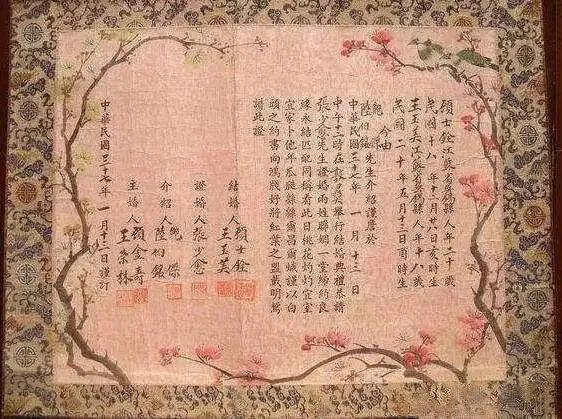 顧士銓江蘇省縣人年二十歲
民國十八年十二月八日亥時生
王玉美江蘇省縣人年十八歲
民國二十年五月十三日酉時生
今由
鮑傑
陸伯銘先生介紹謹居於
中華民國三十七年一月十三日
中午十二時在舉行結婚典禮恭請
張少愈先生證婚兩姓聯姻一堂締約良
緣永結匹配同稱看此日桃花灼灼宜室
宜家卜他年瓜瓞緜緜爾昌爾熾謹以白
頭之約書向鴻牋好將紅葉之盟載明鴛
譜此證
結婚人顧士銓
王玉美
證婚人張少愈
介紹人鮑傑
陸伯銘
主婚人顧金壽
王榮林
中華民國三十七年一月十三日謹訂